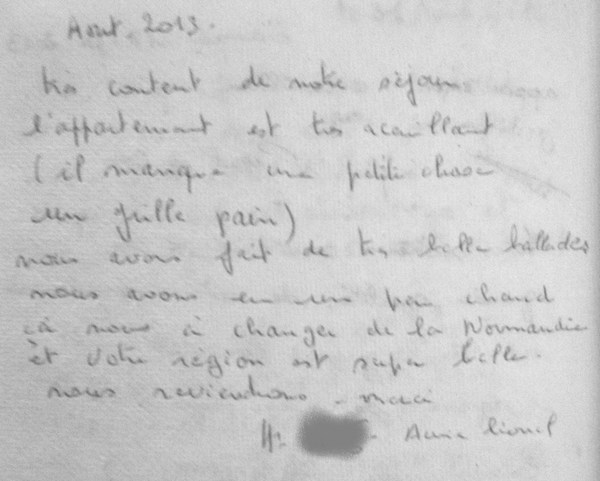 Aout 2013.
très content de notre séjour
l'appartement est très acceuillant
(il manque une petite chose
un grille pain)
nous avons fait de très belle ballades
nous avons eu un peu chaud
cà nous à changer de la Normandie
èt votre région est super belle.
nous reviendrons - merci
Lionel